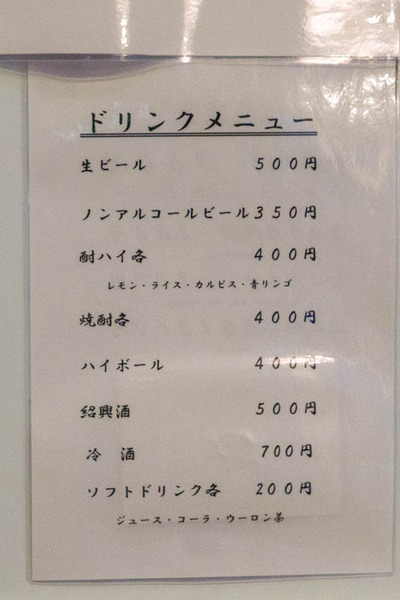 ドリンクメニュー
生ビール 500円
ノンアルコールビール350円
酎ハイ各 400円
レモン・ライス・カルピス・青リンゴ
焼酎各 400円
ハイボール 400円
紹興酒 500円
冷 酒 700円
ソフトドリンク各 200円
ジュース・コーラ・ウーロン茶